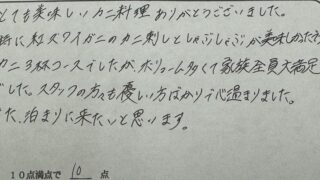 とても美味しいカニ料理ありがとうございました。
特に紅ズワイガニのカニ刺しとしゃぶしゃぶが美味しかったです
カニ3杯コースでしたが、ボリューム多くて家族全員大満足
でした。スタッフの方々も優しい方ばかりで心温まりました。
また、泊まりに来たいと思います。
10点満点で 10 点